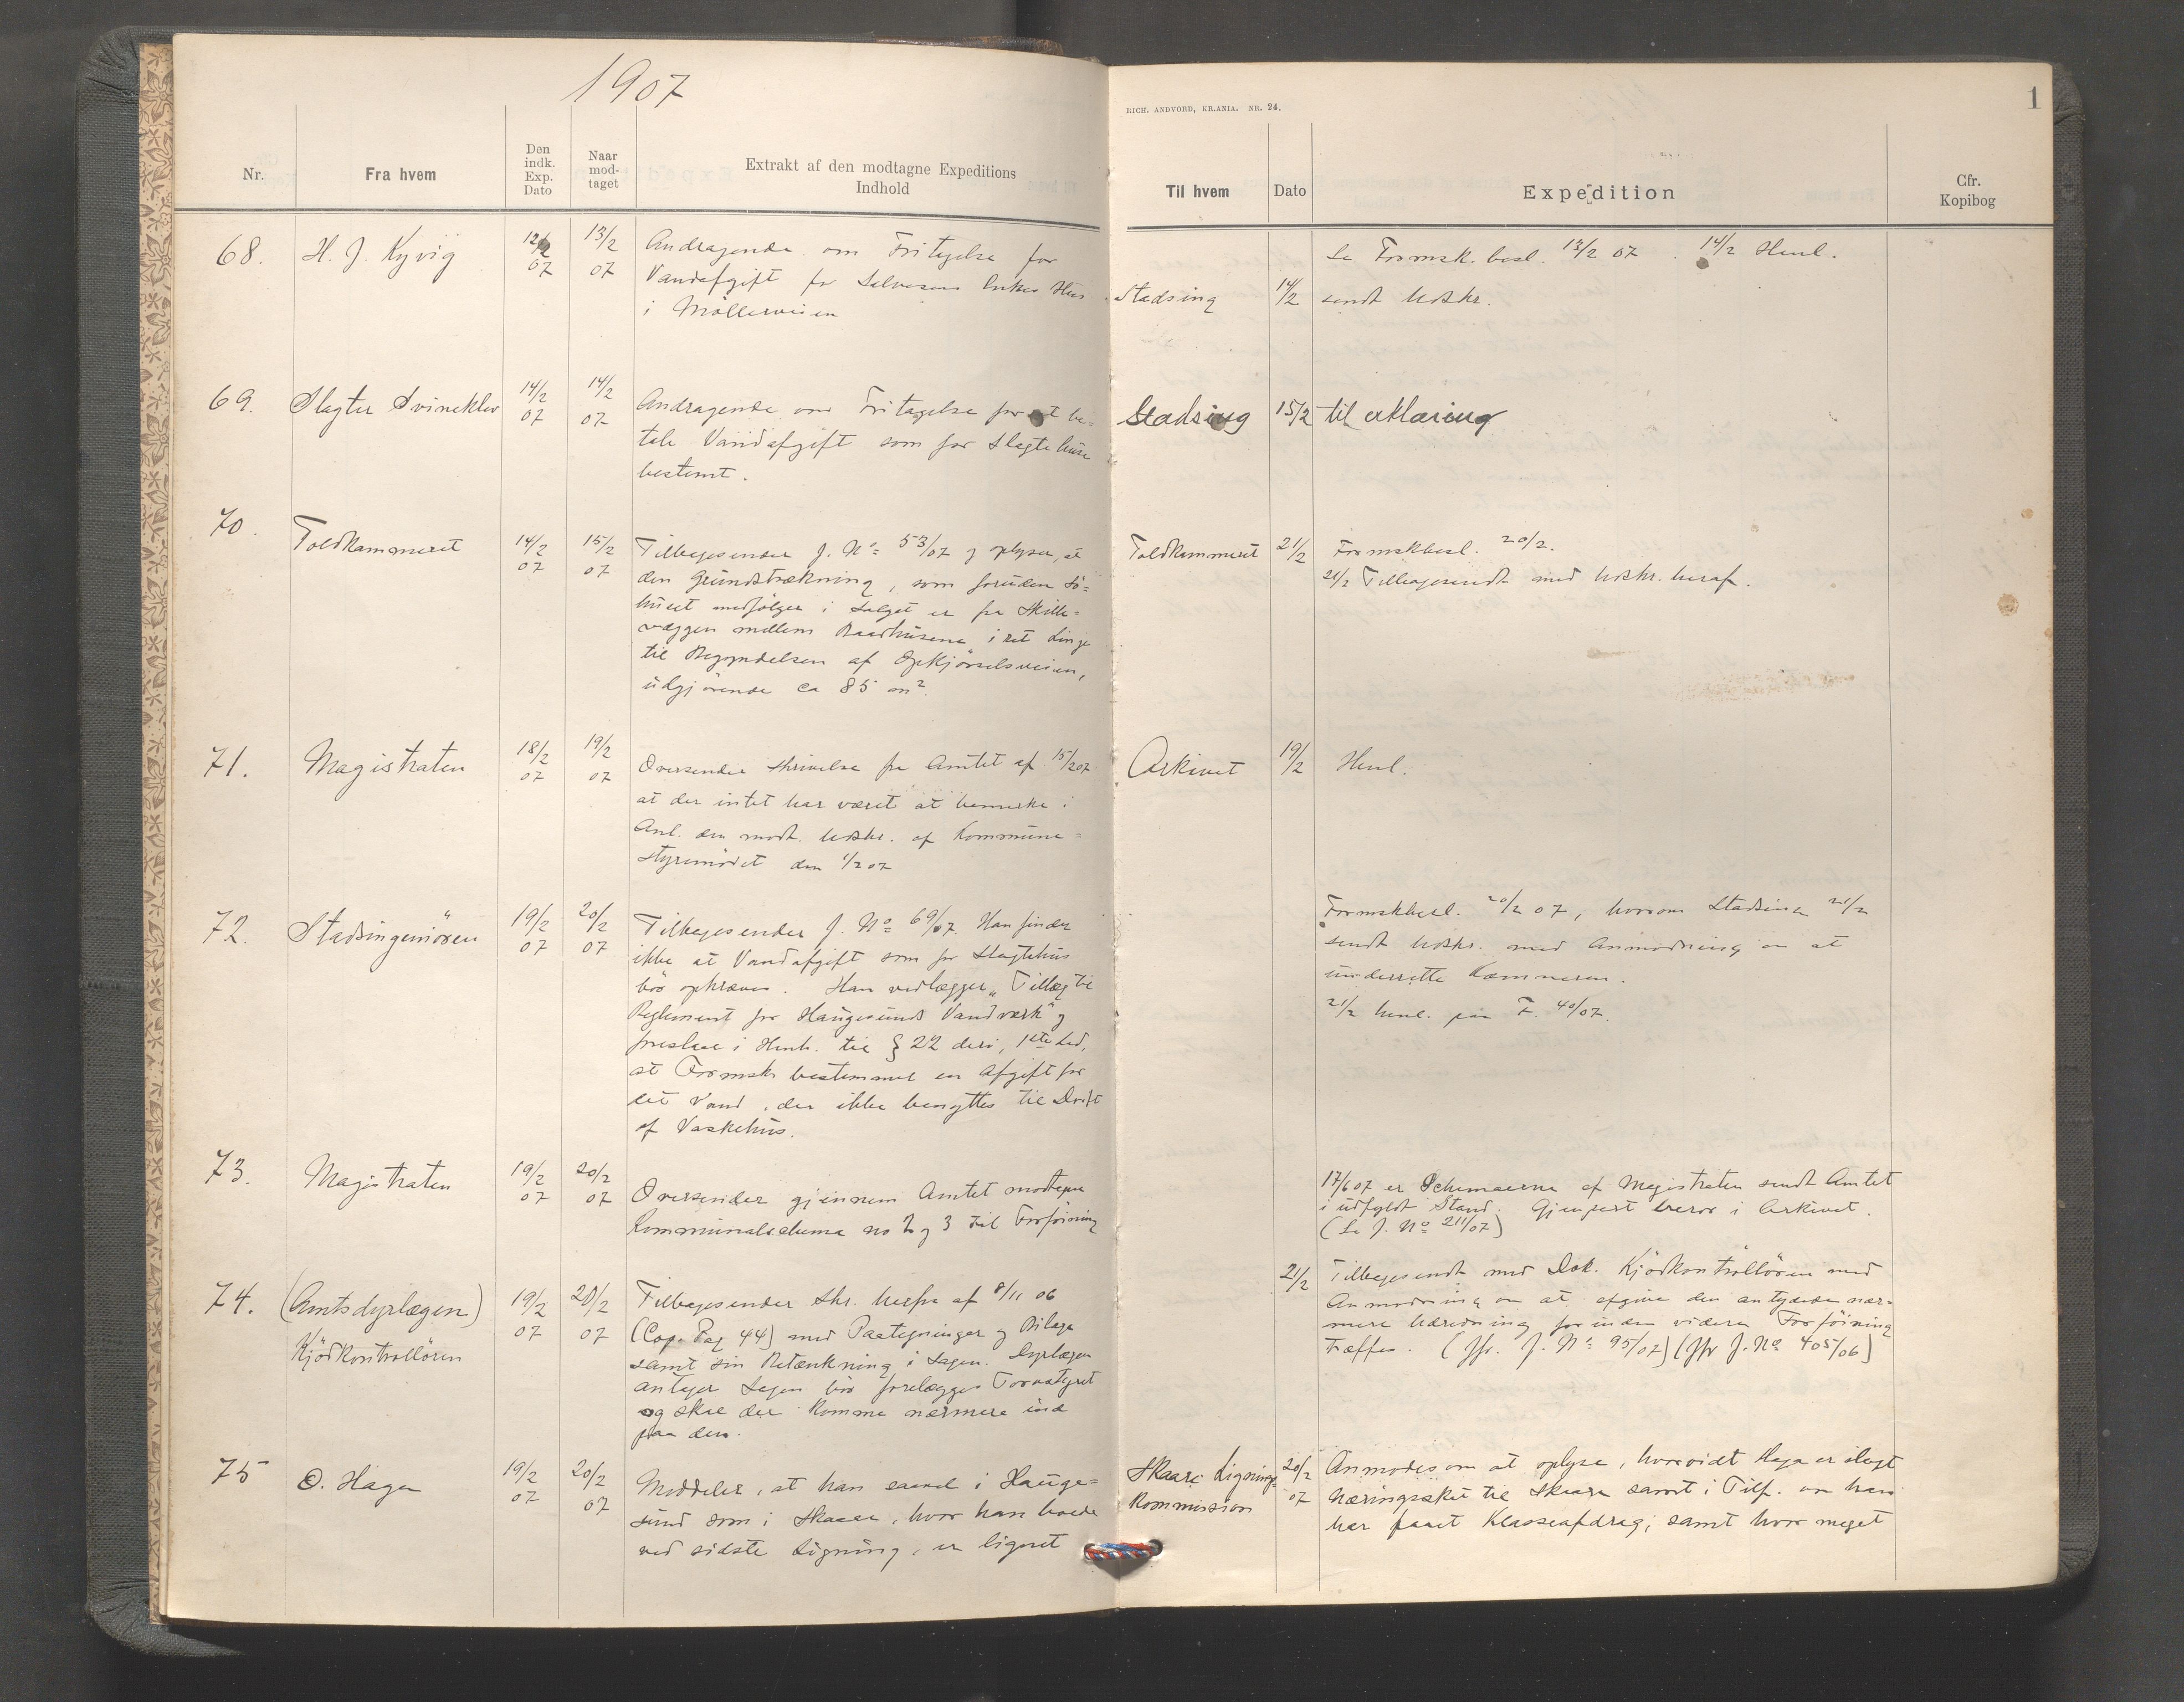 1907
RICH. ANDVORD, KR.ANIA. NR. 24.
1
Nr.
Fra hvem
Den indk. Exp. Dato
Naar mod-taget
Extrakt af den modtagne Expeditions Indhold
Til hvem
Dato
Expedition
Cfr. Kopibog
68.
H. J. Kyvig
12/2 07
13/2 07
Andragende om Fritagelse for
Vandafgift for Selvesens Enkes Hus
i Möllerveien
Se Formsk. besl. 13/2 07. 14/2 Henl.
Stadsing
14/2
sendt Udskr.
69.
Slagter Svineklev
14/2 07
14/2 07
Andragende om Fritagelse for at be-
tale Vandafgift som for Slagtehuse
bestemt.
Stadsing
15/2
til erklæring
70.
Toldkammeret
14/2 07
15/2 07
Tilbagesender J. No 53/07 og oplyser, at
den Grundstrækning, som foruden Sö-
huset medfölger i Salget er fra Skille-
væggen mellem Baadhusene i ret Linje
til Begyndelsen af Opkjörselsveien,
udgjörende ca 85 m2.
Toldkammeret
21/2
Formskbesl. 20/2.
21/2 Tilbagesendt med Udskr. heraf.
71.
Magistraten
18/2 07
19/2 07
Oversender Skrivelse fra Amtet af 15/2 07
at der intet har været at bemerke i
Anl. den modt. Udskr. af Kommune-
styremödet den 1/2 07
Arkivet
19/2
Henl.
72.
Stadsingeniören
19/2 07
20/2 07
Tilbagesender J. No 69/07. Han finder
ikke at Vandafgift som for Slagtehus
bör opkræves. Han vedlægger „Tillæg til
Reglement for Haugesunds Vandværk" og
foreslaar i Henh. til § 22 deri, 1ste Led,
at Formsk. bestemmer en Afgift for
det Vand, der ikke benyttes til Drift
af Vaskehus.
Formskbesl. 20/2 07, hvorom Stadsing 21/2
sendt Udskr. med Anmodning om at
underrette Kæmneren.
21/2 henl. paa F. 40/07.
73.
Magistraten
19/2 07
20/2 07
Oversender gjennem Amtet modtagne
Kommunalschema no 2 og 3 til Forföining
17/6 07 er Schemaerne af Magistraten sendt Amtet
i udfyldt Stand. Gjenpart beror i Arkivet.
(Se J. No 211/07)
74.
(Amtsdyrlægen)
Kjödkontrollören
19/2 07
20/2 07
Tilbagesender Skr. herfra af 8/11 06
(Cop. Pag 44) med Paategninger og Bilage
samt sin Betænkning i Sagen. Dyrlægen
antager Sagen bör forelægges Torvstyret
og skal der komme nærmere ind
paa den.
21/2
Tilbagesendt med Dok. Kjödkontrollören med
Anmodning om at afgive den antydede nær-
mere Udredning forinden videre Forföining
træffes. (Jfr. J. No 95/07) (Jfr J. No 405/06)
75
O. Hagen
19/2 07
20/2 07
Meddeler, at han saavel i Hauge-
sund som i Skaare, hvor han boede
ved sidste Ligning, er lignet
Skaare Lignings-
kommission
20/2 07
Anmodes om at oplyse, hvorvidt Hagen er ilagt
Næringsskat til Skaare samt i Tilf. om han
har faaet Klasseafdrag; samt hvor meget